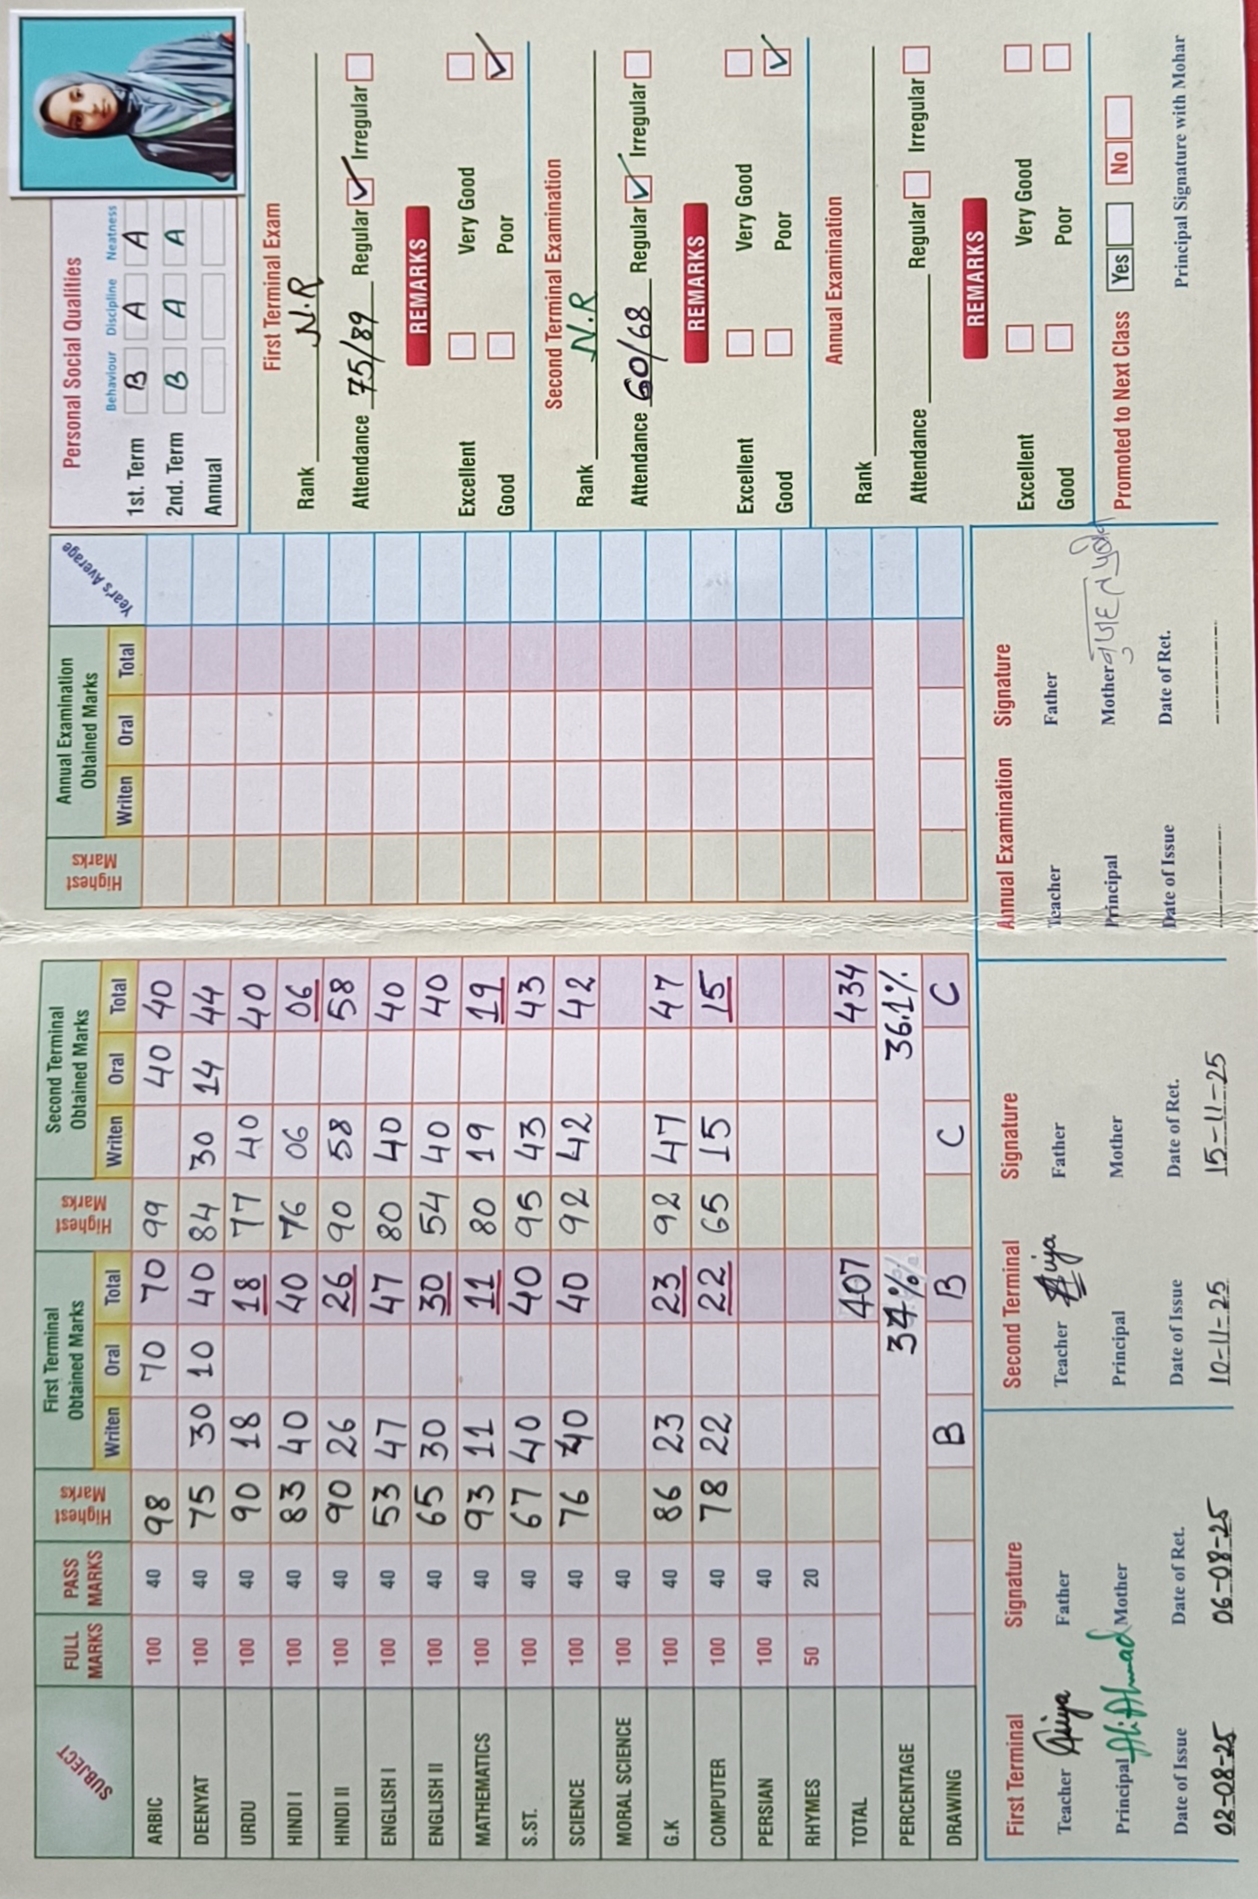 SUBJECT FULL MARKS PASS MARKS Highest Marks First Terminal Obtained Marks Writen Oral Total Highest Marks Second Terminal Obtained Marks Writen Oral Total Highest Marks Annual Examination Obtained Marks Writen Oral Total Year's Average
ARBIC 100 40 98 70 70 99 40 40
DEENYAT 100 40 75 30 10 40 84 30 14 44
URDU 100 40 90 18 18 77 40 40
HINDI I 100 40 83 40 40 76 06 06
HINDI II 100 40 90 26 26 90 58 58
ENGLISH I 100 40 53 47 47 80 40 40
ENGLISH II 100 40 65 30 30 54 40 40
MATHEMATICS 100 40 93 11 11 80 19 19
S.ST. 100 40 67 40 40 95 43 43
SCIENCE 100 40 76 40 40 92 42 42
MORAL SCIENCE 100 40
G.K 100 40 86 23 23 92 47 47
COMPUTER 100 40 78 22 22 65 15 15
PERSIAN 100 40
RHYMES 50 20
TOTAL 407 434
PERCENTAGE 34% 36.1%
DRAWING B B C C
First Terminal Signature
Teacher Father
Principal Ali Ahmad Mother
Date of Issue Date of Ret.
02-08-25 06-08-25
Second Terminal Signature
Teacher Father
Principal Mother
Date of Issue Date of Ret.
10-11-25 15-11-25
Annual Examination Signature
Teacher Father
Principal Mother
Date of Issue Date of Ret.
Personal Social Qualities
Behaviour Discipline Neatness
1st. Term B A A
2nd. Term B A A
Annual
First Terminal Exam
Rank N.R
Attendance 75/89 Regular Irregular
REMARKS
Excellent Very Good
Good Poor
Second Terminal Examination
Rank N.R
Attendance 60/68 Regular Irregular
REMARKS
Excellent Very Good
Good Poor
Annual Examination
Rank
Attendance Regular Irregular
REMARKS
Excellent Very Good
Good Poor
Promoted to Next Class Yes No
Principal Signature with Mohar